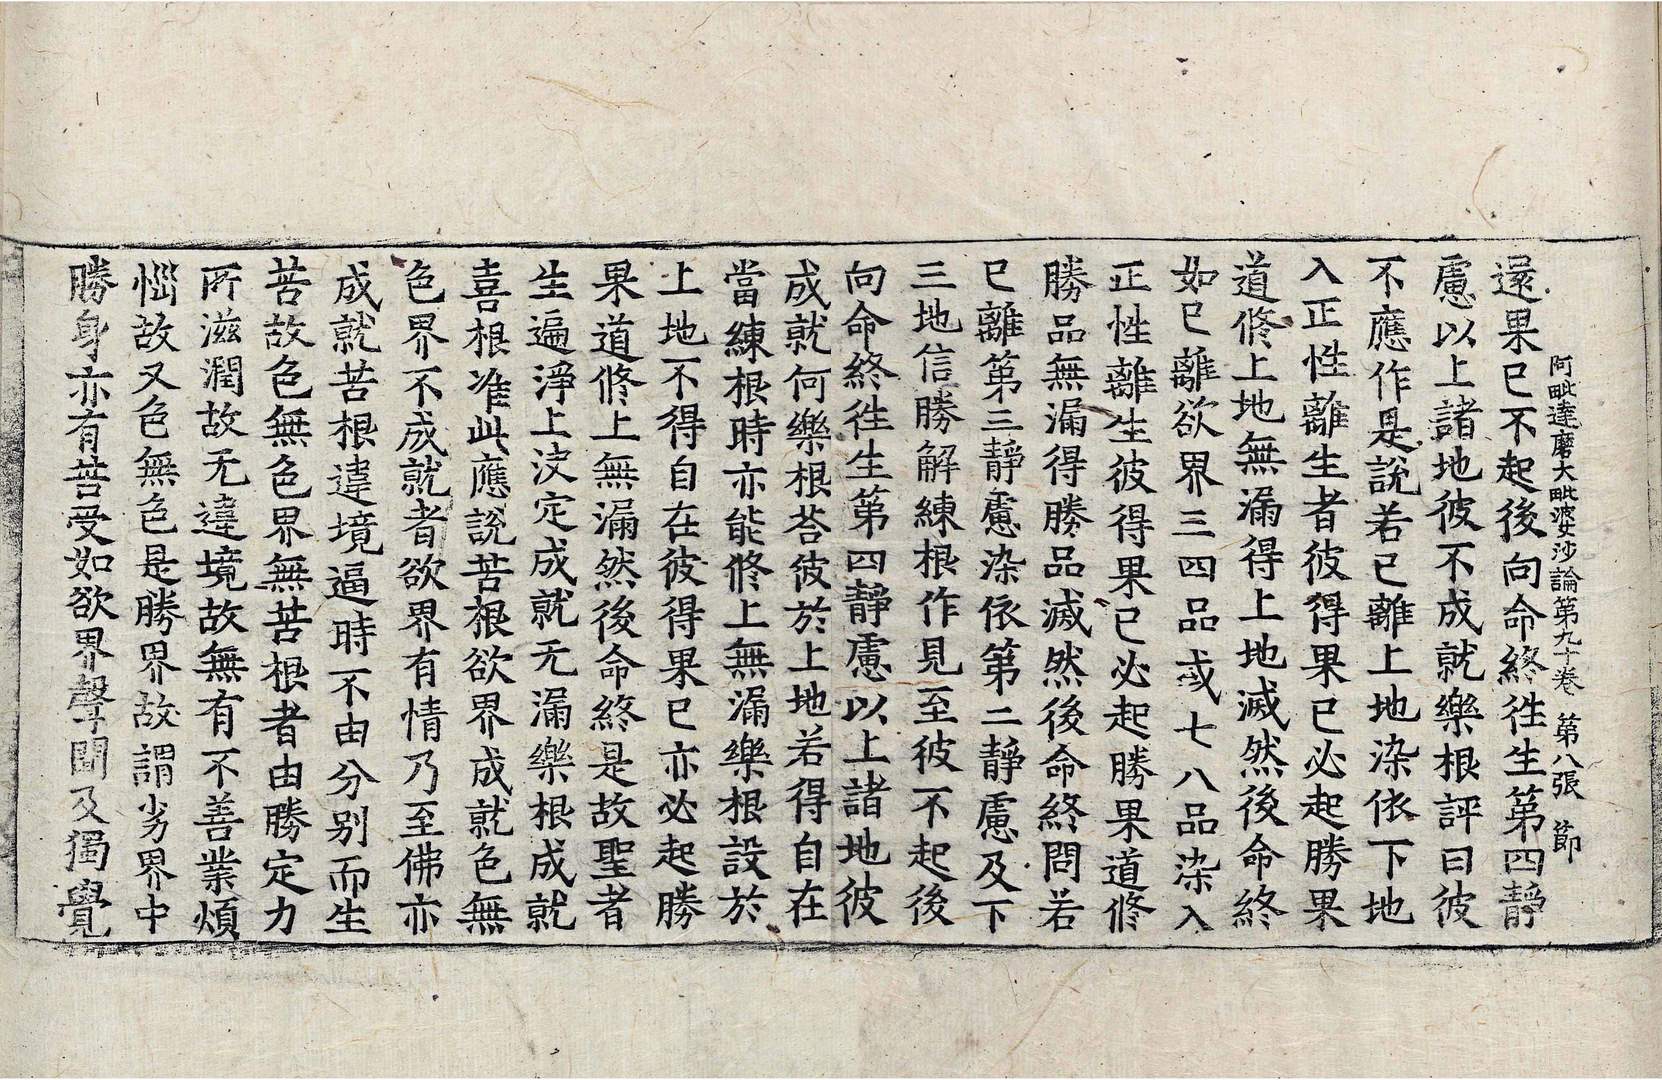 阿毗達磨大毗婆沙論第九十卷 第八張 節
還果已不起後向命終徃生第四靜
慮以上諸地彼不成就樂根評曰彼
不應作是說若已離上地染依下地
入正性離生者彼得果已必起勝果
道修上地無漏得上地滅然後命終
如已離欲界三四品或七八品染入
正性離生彼得果已必起勝果道修
勝品無漏得勝品滅然後命終問若
已離第三靜慮染依第二靜慮及下
三地信勝解練根作見至彼不起後
向命終徃生第四靜慮以上諸地彼
成就何樂根荅彼於上地若得自在
當練根時亦能修上無漏樂根設於
上地不得自在彼得果已亦必起勝
果道修上無漏然後命終是故聖者
生遍淨上決定成就无漏樂根成就
喜根准此應說苦根欲界成就色無
色界不成就者欲界有情乃至佛亦
成就苦根違境逼時不由分别而生
苦故色無色界無苦根者由勝定力
所滋潤故无違境故無有不善業煩
惱故又色無色是勝界故謂劣界中
勝身亦有苦受如欲界聲聞及獨覺